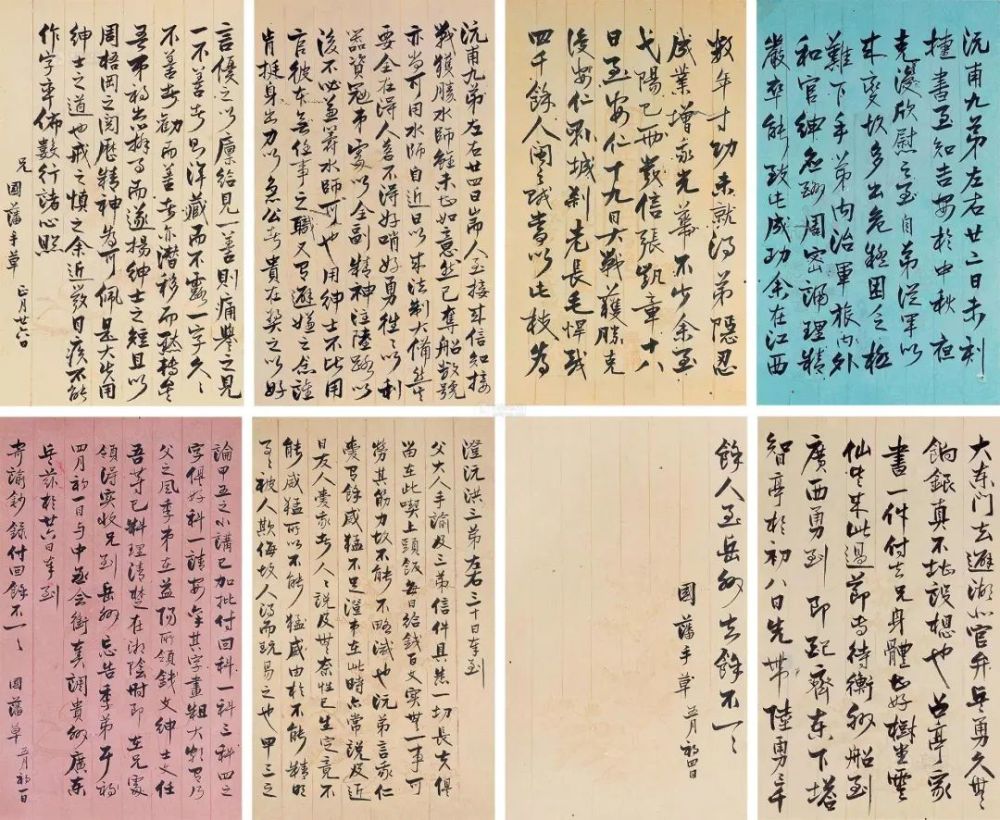 沅甫九弟左右廿二日未刻
接書函知吉安於中秋夜
克復欣慰之至自弟從軍以
來變故多出危難困乏極
難下手弟內治軍旅內外
和官紳應酬周密調理精
嚴卒能致此成功余在江西
數年寸功未就得弟隱忍
成業增我光華不少余至
弋陽已兩載信張凱章十八
日至安仁十九日大戰獲勝克
復安仁縣城剎老長毛悍賊
四千餘人閩之賊當以此枝為
沅甫九弟左右廿四日人至接來信知接
戰獲勝水師雖未甚如意然已奪船數號
亦尚可用水師自近日以來法制大備然其
要全在得人若不得好哨好勇往往以利
器資寇弟處以全副精神注陸路以
後不必兼籌水師可也用紳士不比用
官彼本無任事之職又有避嫌之念誰
肯挺身出力以急公者貴在獎之以好
言優之以廩給見一善則痛譽之見
一不善者則渾藏而不露一字久久
不善者勸而善者亦潛移而默轉矣
吾弟初出辦事而遂揚紳士之短且以
周梧岡之閱歷精神為可佩是大失用
紳士之道也戒之慎之余近發目疾不能
作字率佈數行諸心照
兄國藩手草 正月廿八日
大東門去避湖小官弁兵勇久無
餉銀真不堪設想也呂亭家
書一件付去兄身體甚好樹堂雲
仙皆來此過節專待衡州船到
廣西勇到即配齊東下塔
智亭於初八日先帶陸勇三千
餘人至岳州去餘不一一
國藩手草 五月初四日
澄沅洪三弟左右三十日奉到
父大人手諭及三弟信件具悉一切長夫俱
尚在此喫上頭飯每日給錢百文實無一事可
勞其筋力故不能不略減也沅弟言我仁
愛有餘威猛不足澄弟在此時亦常說及近
日友人愛我者人人說及無奈性已生定竟不
能威猛所以不能猛威由於不能精明
事事被人欺侮故人得而玩易之也甲三之
論甲五之小講已加批付回科一科三科四之
字俱好科一請安稟其字畫粗大頗有乃
父之風季弟在益陽所領錢文紳士文任
吾等已料理清楚在湘陰時即在兄處
領得實收兄到岳州忘告季弟耳初
四月初一日與中丞會銜奏調貴州廣東
兵茲於廿六日奉到
寄諭鈔錄付回餘不一一
國藩草 五月初一日